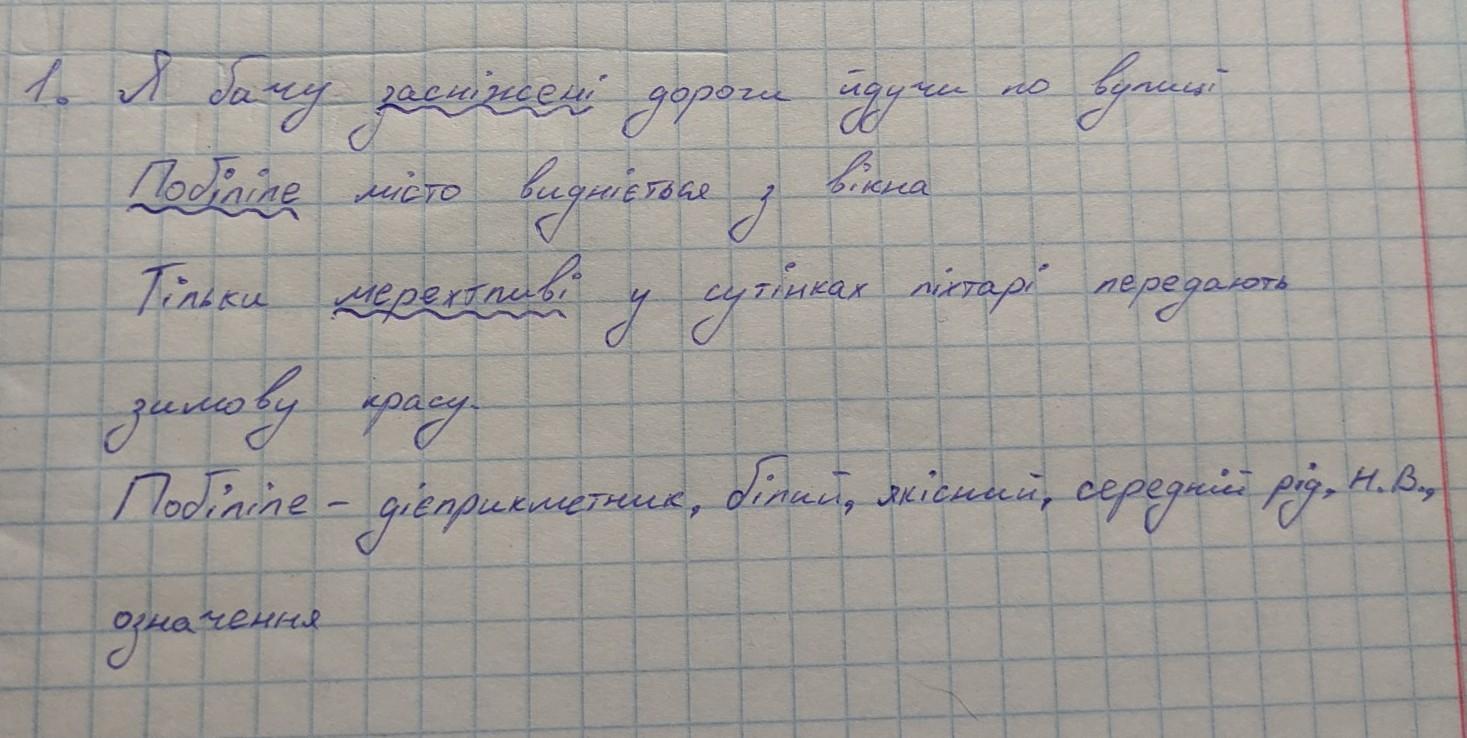 1. Я бачу засніжені дороги йдучи по вулиці
Побіліле місто видніється з вікна
Тільки мерехтливі у сутінках ліхтарі передають
зимову красу.
Побіліле - дієприкметник, білий, якісний, середній рід, Н.В.,
означення